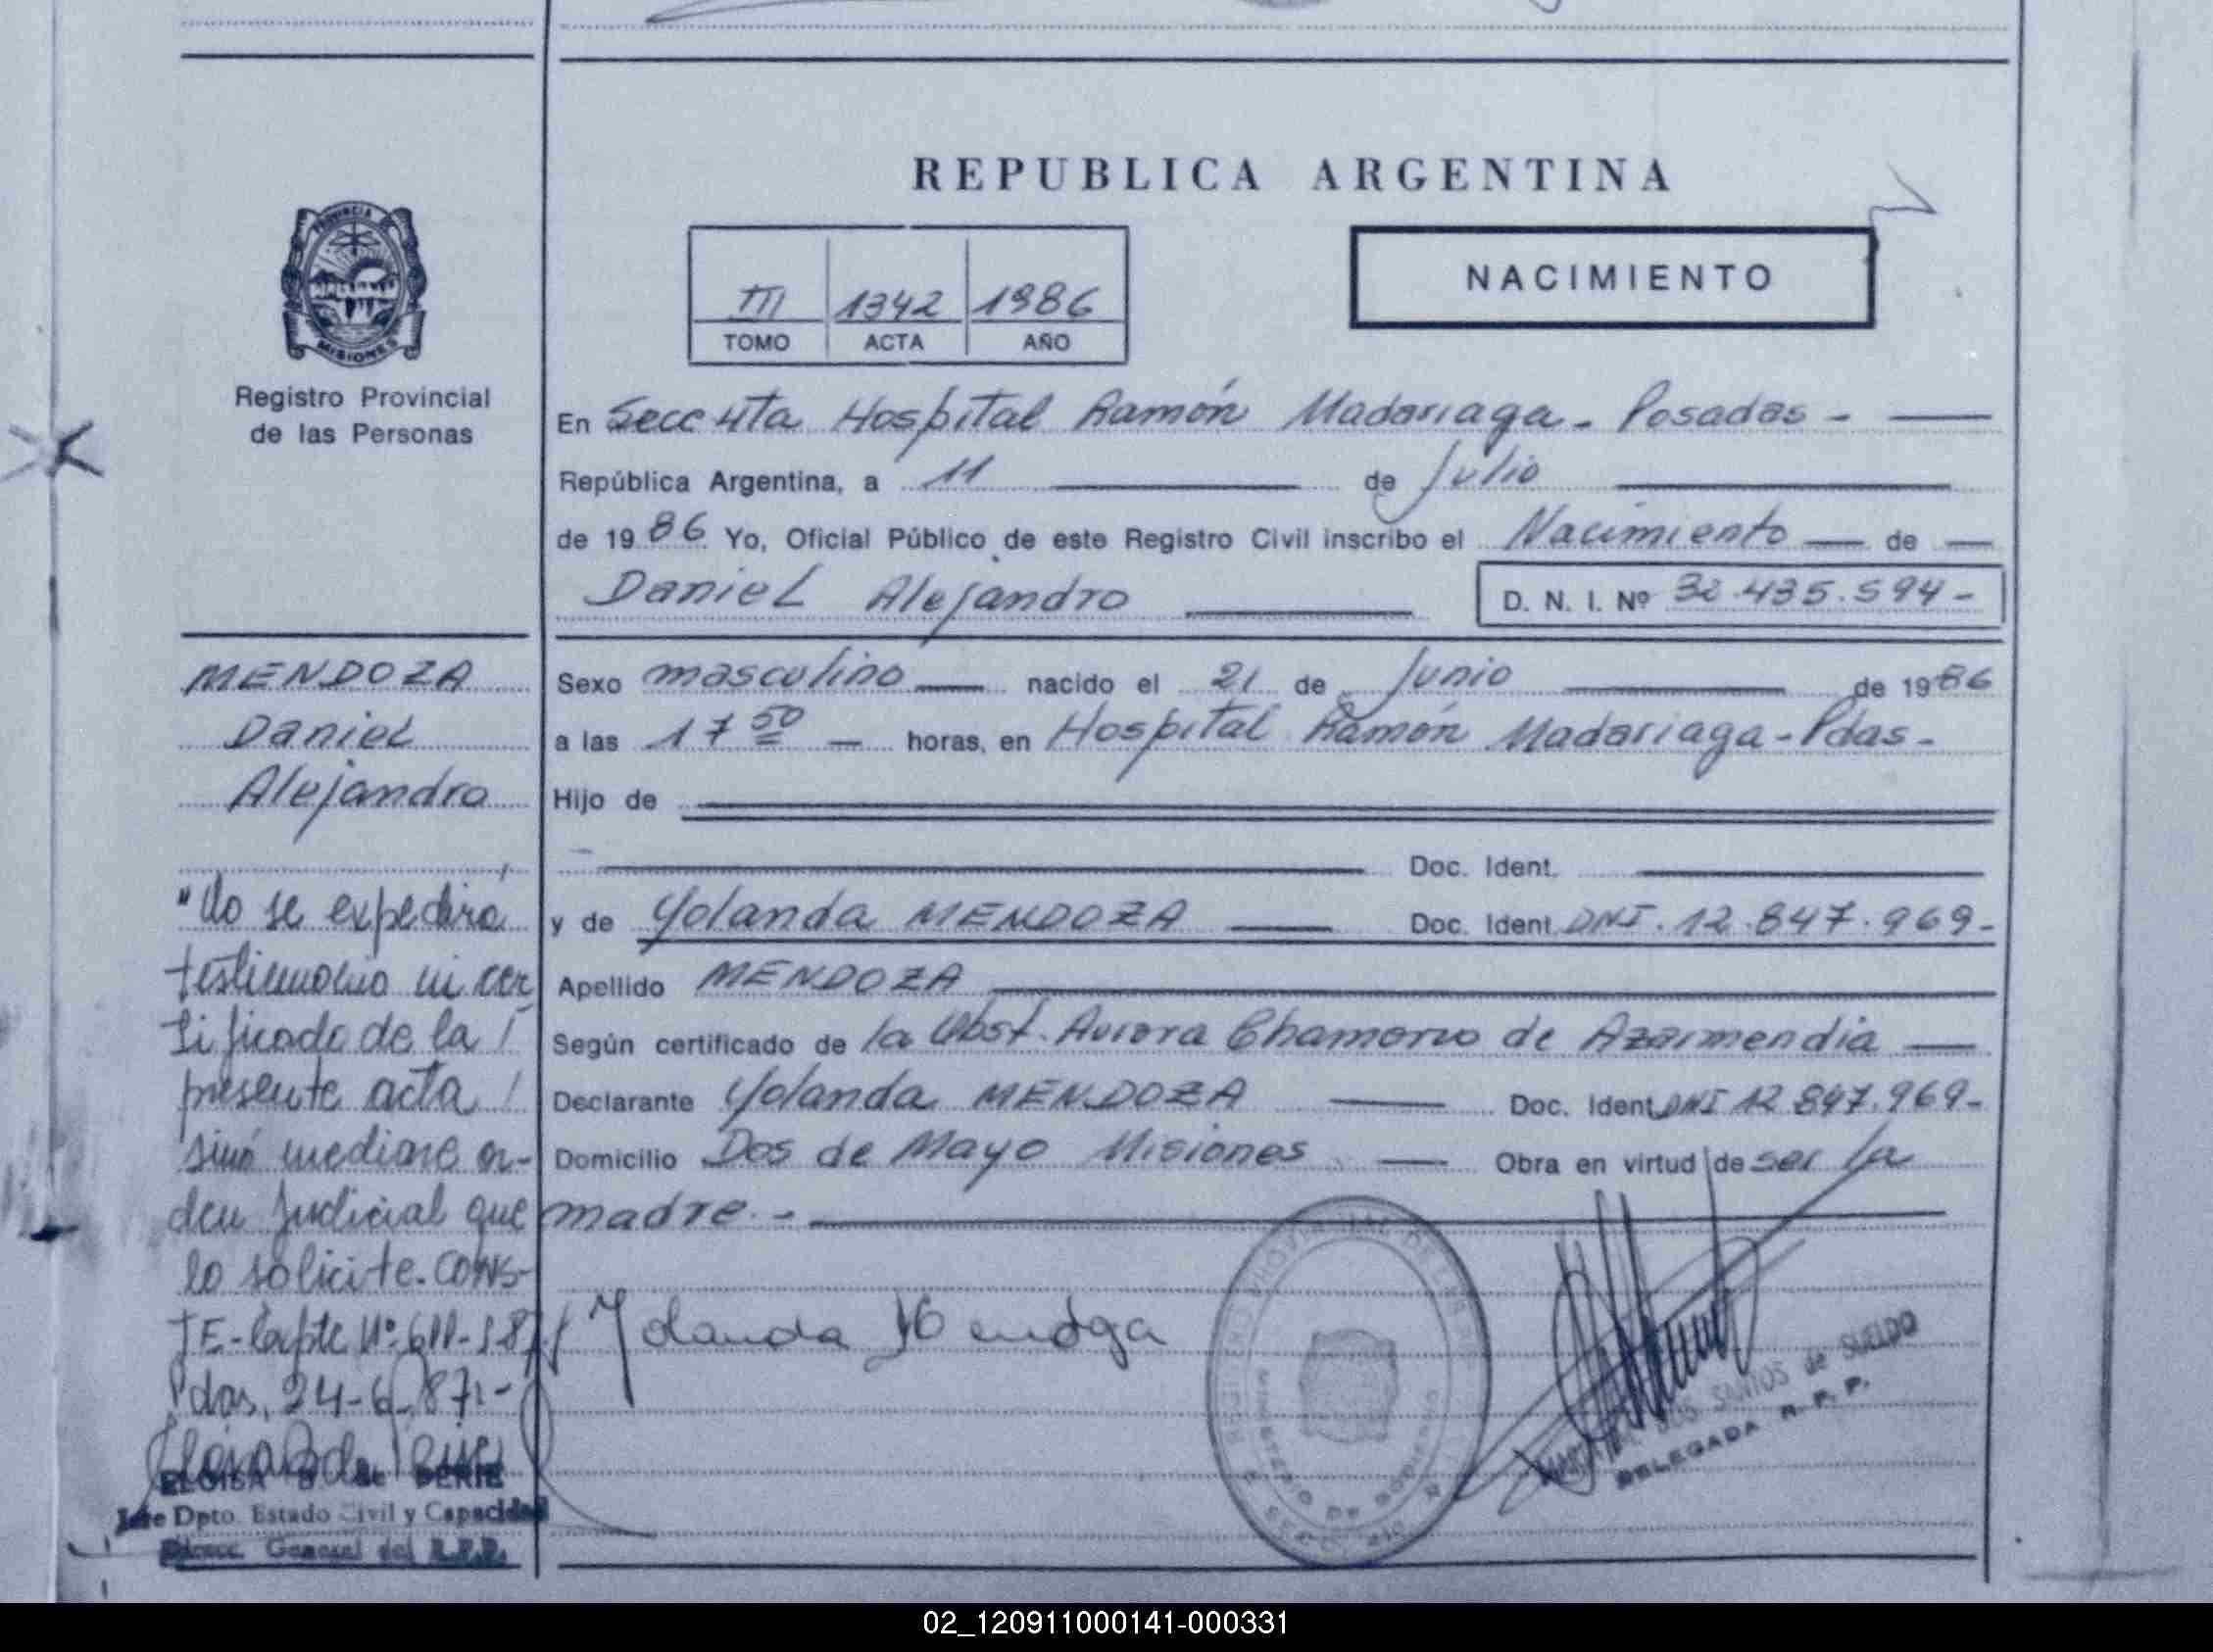 REPUBLICA ARGENTINA
PROVINCIA
MISIONES
Registro Provincial
de las Personas
III 1342 1986
TOMO ACTA AÑO
NACIMIENTO
En Secc 4ta Hospital Ramón Madariaga - Posadas -
República Argentina, a 11 de Julio
de 1986 Yo, Oficial Público de este Registro Civil inscribo el Nacimiento de
Daniel Alejandro
D. N. I. Nº 32.435.594-
MENDOZA
Daniel
Alejandro
Sexo masculino nacido el 21 de Junio de 1986
a las 17 50 horas, en Hospital Ramón Madariaga - Pdas -
Hijo de
Doc. Ident.
y de Yolanda MENDOZA Doc. Ident. DNI. 12.847.969-
Apellido MENDOZA
Según certificado de la Obst. Aurora Chamorro de Azarmendia
Declarante Yolanda MENDOZA Doc. Ident. DNI 12 847.969-
Domicilio Dos de Mayo Misiones Obra en virtud de ser la
madre.-
"No se expedirá
testimonio ni cer
tificado de la
presente acta
sinó mediare or-
den Judicial que
lo solicite. CONS-
TE- Expte Nº
Pdas, 24-6-87-
Yolanda Mendoza
ELOISA B. de
Jefe Dpto. Estado Civil y Capacidad
General del R.P.P.
MINISTERIO DE GOBIERNO
DOS SANTOS de SUELDO
DELEGADA R. P. P.
02_120911000141-000331